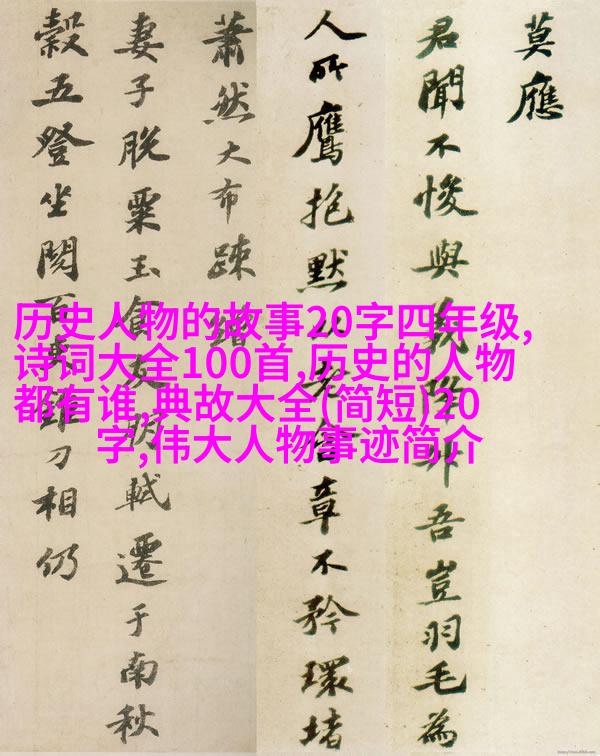 莫應
君聞不悛與義降升吾豈羽毛為
人所鷹抱默以老含章不矜環堵
蕭然大布疎
妻子脫粟玉食友朋軾遷于南秋
穀五登坐閱百吏錐刀相仍
历史人物的故事20字四年级,
诗词大全100首,历史的人物
都有谁,典故大全(简短)20
字,伟大人物事迹简介